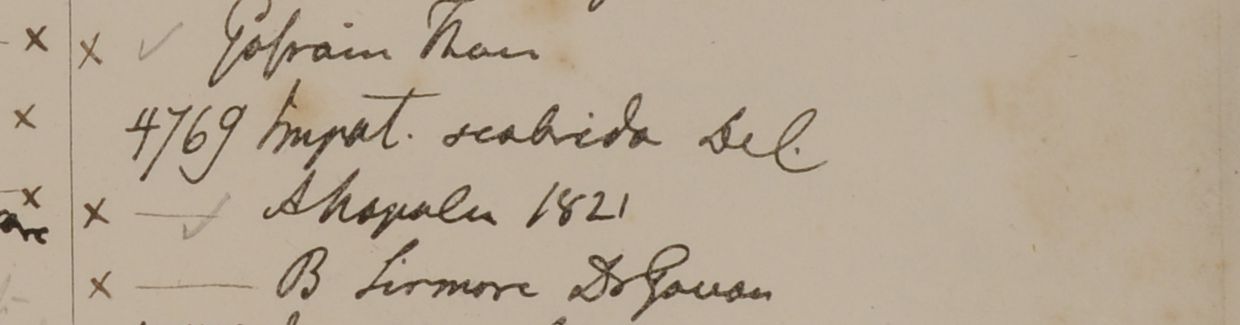 x x ✓ Gosain Than
x 4769 Impat. scabrida Del.
x x — ✓ Nepalia 1821
x — B Sirmore Dr Govan